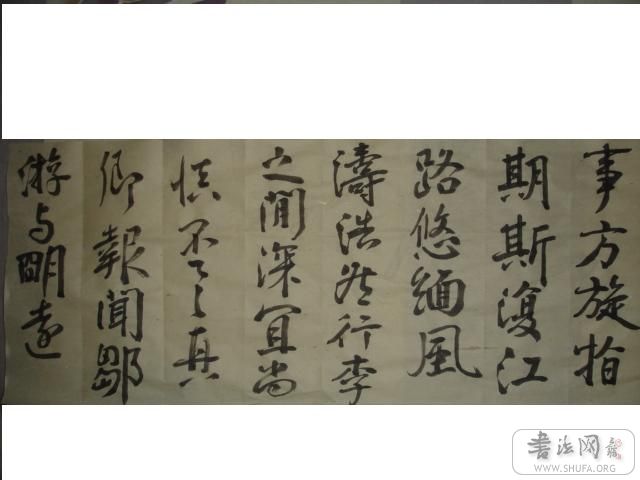 事方旋指
期斯复江
路悠缅風
濤浩然行李
之間深宜尚
慎不不具
卿報聞鄒
游与明遠
書法网
WWW.SHUFA.ORG